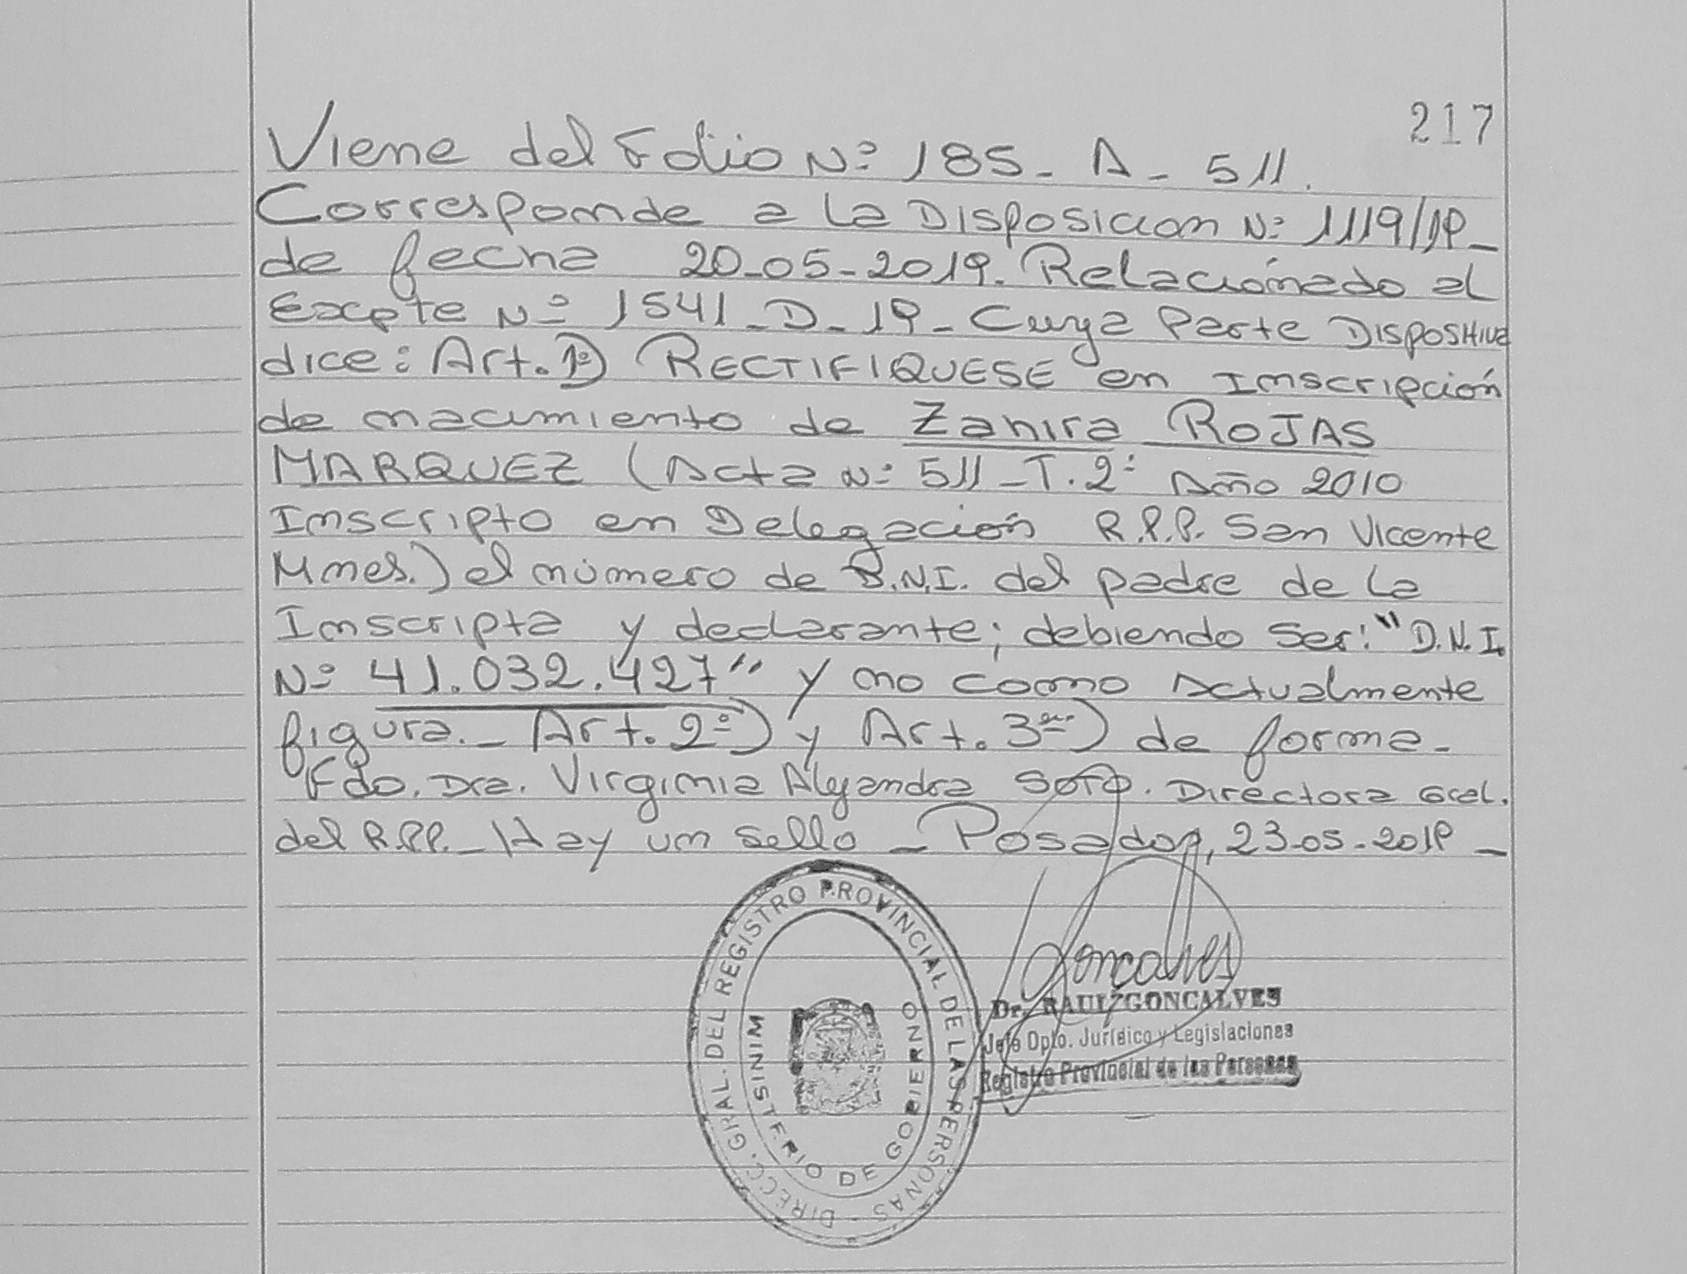 217
Viene del Folio Nº 185 - A - 511.
Corresponde a la Disposicion Nº 1119/19 -
de fecha 20-05-2019. Relacionado al
Expte Nº 1541 - D - 19 - Cuya Parte Dispositiva
dice: Art. 1º) RECTIFIQUESE en Inscripción
de nacimiento de Zahira ROJAS
MARQUEZ (Acta Nº 511 - T. 2º Año 2010
Inscripto en Delegación R.P.P. San Vicente
Mnes.) el número de D.N.I. del padre de la
Inscripta y declarante; debiendo ser: "D.N.I.
Nº 41.032.427" y no como Actualmente
figura. - Art. 2º) y Art. 3º) de forma -
Fdo. Dra. Virginia Alejandra Soto. Directora Gral.
del R.P.P. - Hay un sello - Posadas, 23-05-2019 -
DIRECC. GRAL. DEL REGISTRO PROVINCIAL DE LAS PERSONAS -
MINISTERIO DE GOBIERNO
Goncalves
Dr. RAUL GONCALVES
Jefe Dpto. Jurídico y Legislaciones
Registro Provincial de las Personas